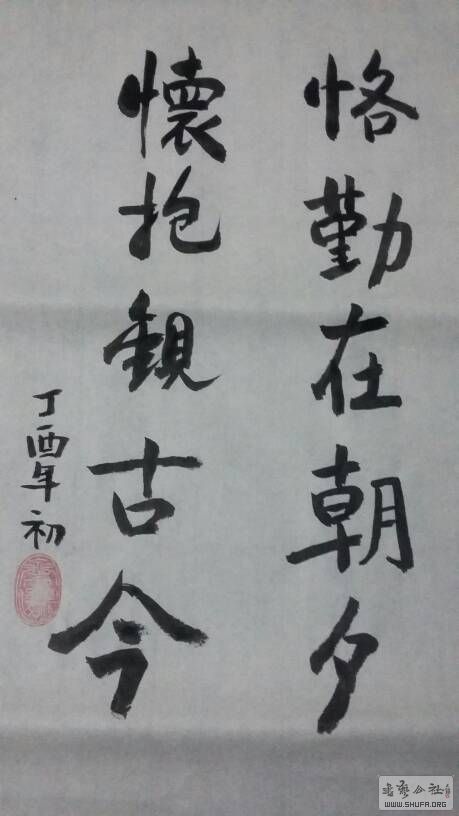 恪勤在朝夕
懷抱觀古今
丁酉年初
WWW.SHUFA.ORG